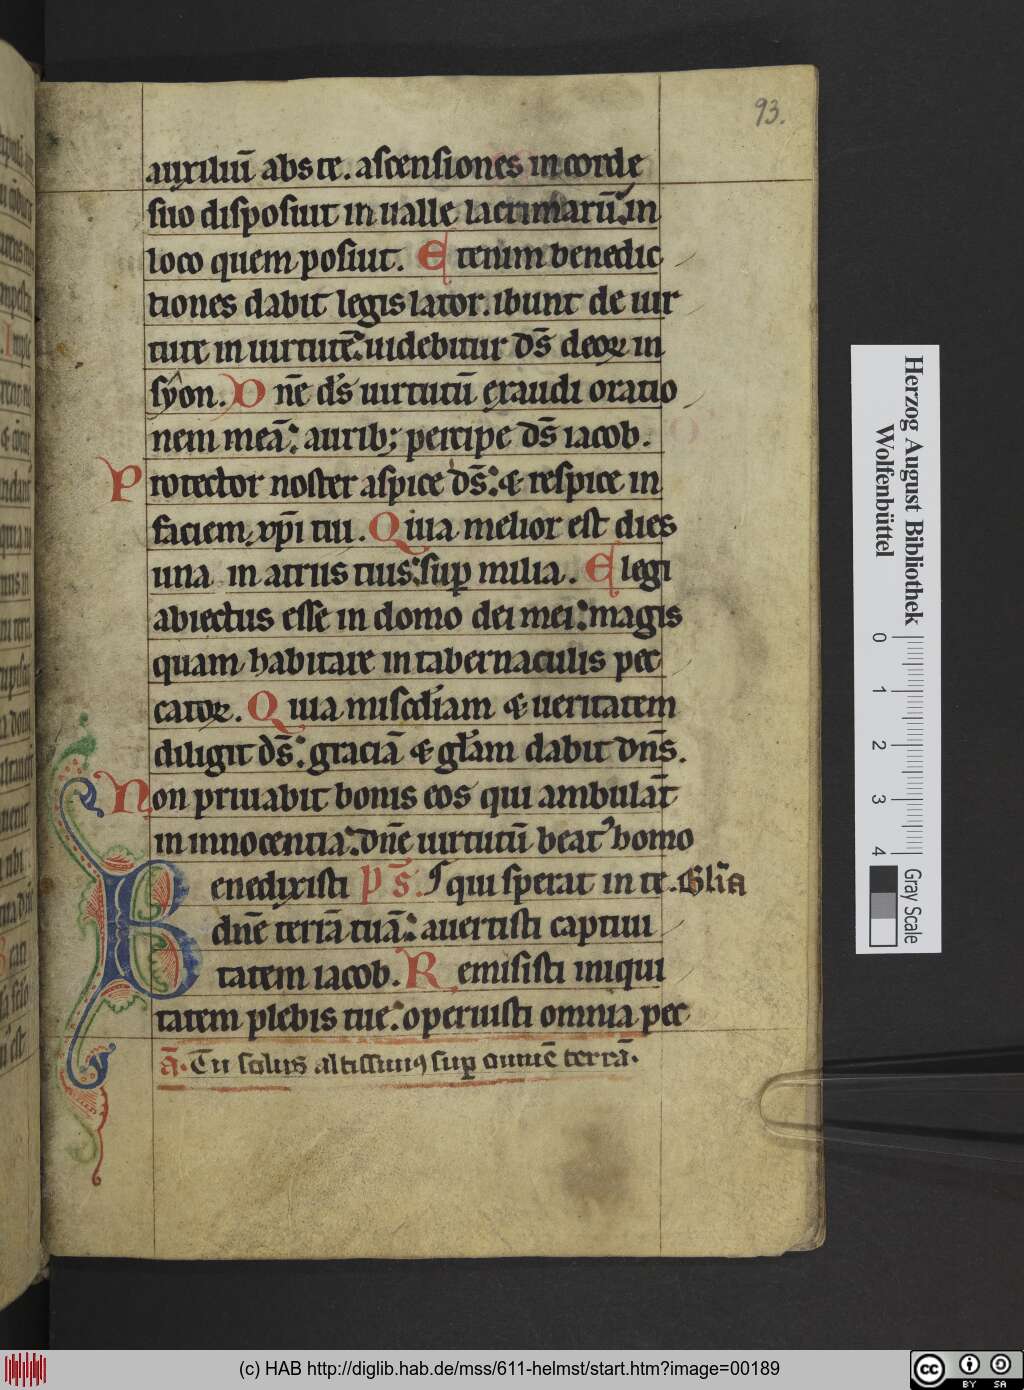 93.
auxiliū abs te. ascensiones in corde
suo disposuit in ualle lacrimarū. in
loco quem posuit. Etenim benedic
tiones dabit legis lator. ibunt de uir
tute in uirtutē. uidebitur dƨ̄ deoꝝ in
syon. Dn̄e ds̄ uirtutū exaudi oratio
nem meā: aurib; percipe ds̄ iacob.
Protector noster aspice ds̄: & respice in
faciem xp̄i tui. Quia melior est dies
una in atriis tuis: suꝑ milia. Elegi
abiectus esse in domo dei mei: magis
quam habitare in tabernaculis pec
catoꝝ. Quia misc̄diam & ueritatem
diligit ds̄: graciā & gl̄am dabit dn̄s.
Non priuabit bonis eos qui ambulāt
in innocentia: dn̄e uirtutū beat᾽ homo
qui sperat in te. Gl̄ia
ps̄.
Benedixisti
dn̄e terrā tuā: auertisti captiui
tatem iacob. Remisisti iniqui
tatem plebis tue: operuisti omnia pec
ā. Tu solus altissimꝰ suꝑ omnē terrā.
Herzog August Bibliothek
Wolfenbüttel
0 1 2 3 4
Gray Scale
(c) HAB http://diglib.hab.de/mss/611-helmst/start.htm?image=00189
cc BY SA